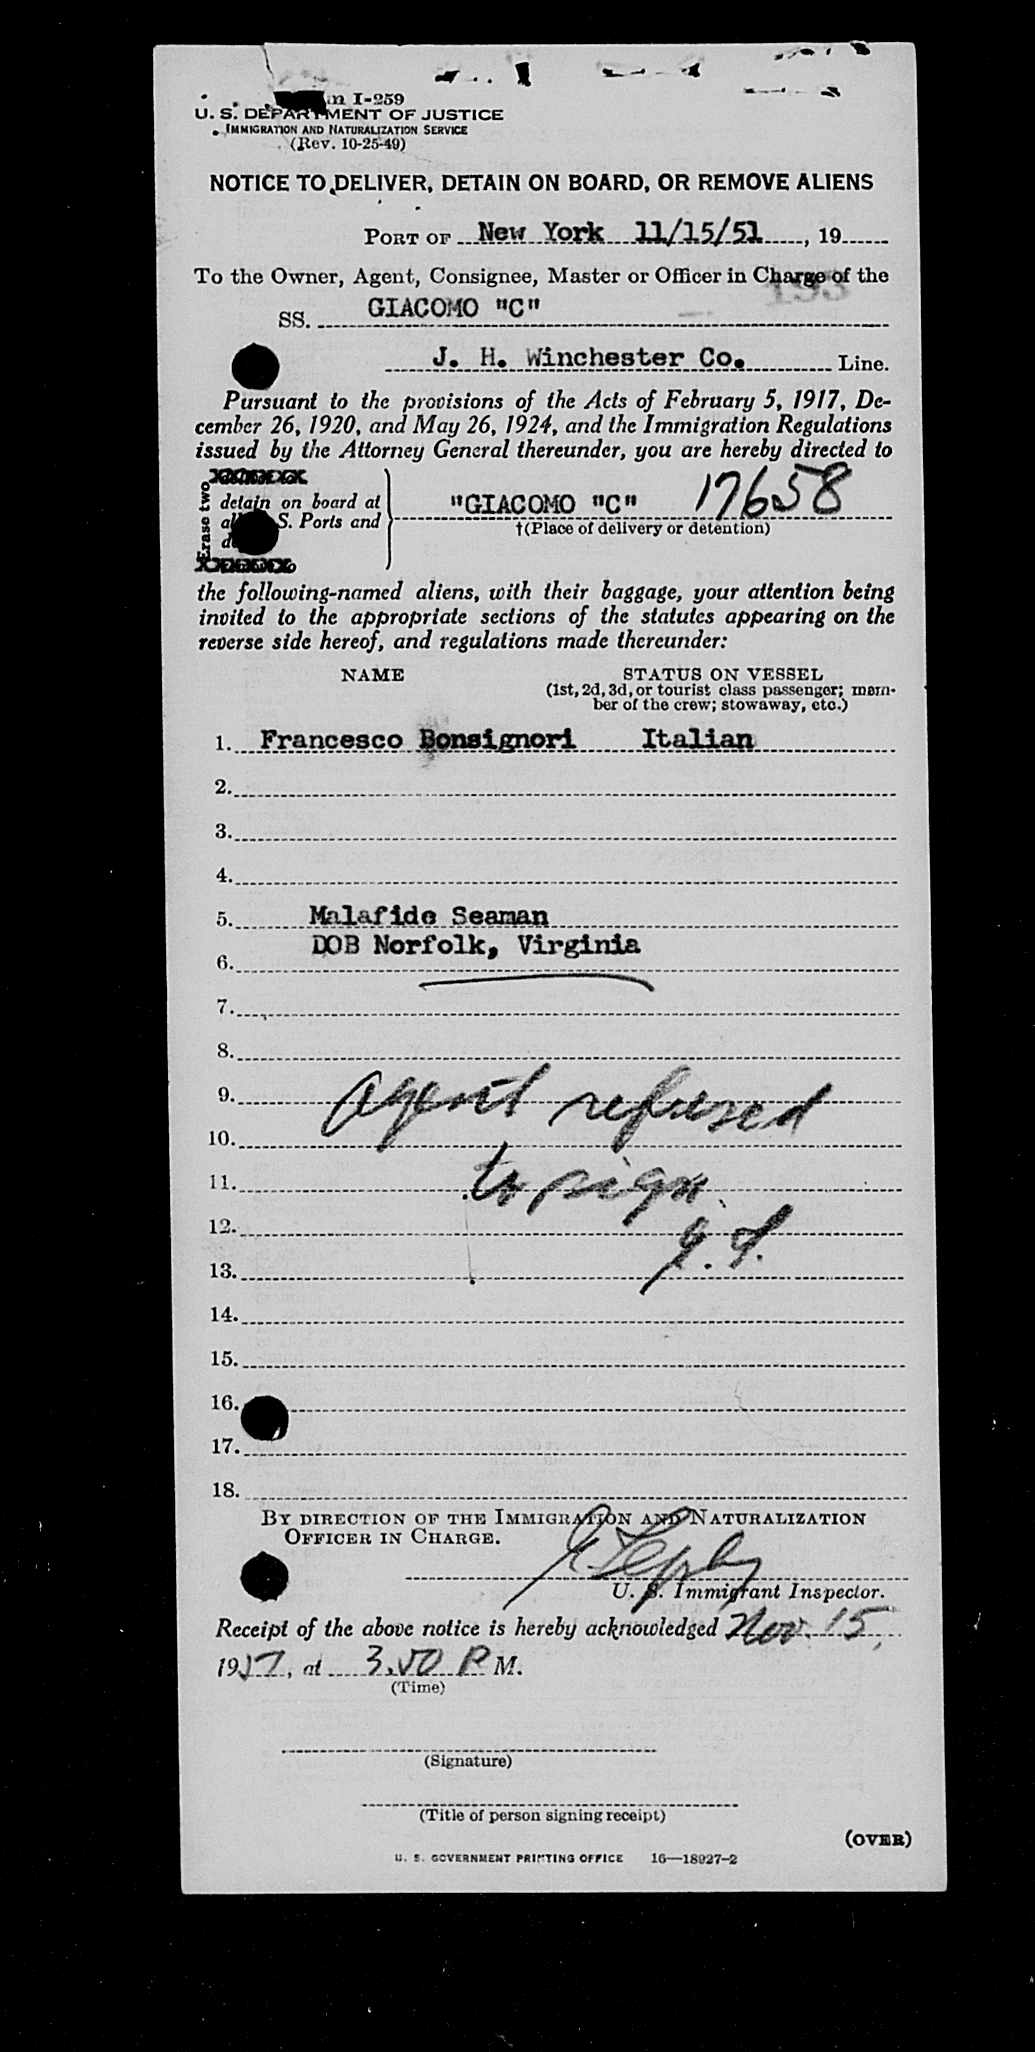 I-259
U. S. DEPARTMENT OF JUSTICE
IMMIGRATION AND NATURALIZATION SERVICE
(Rev. 10-25-49)
NOTICE TO DELIVER, DETAIN ON BOARD, OR REMOVE ALIENS
PORT OF New York 11/15/51, 19
To the Owner, Agent, Consignee, Master or Officer in Charge of the
193
SS. GIACOMO "C"
J. H. Winchester Co. Line.
Pursuant to the provisions of the Acts of February 5, 1917, De-
cember 26, 1920, and May 26, 1924, and the Immigration Regulations
issued by the Attorney General thereunder, you are hereby directed to
Erase two
detain on board at
S. Ports and
"GIACOMO "C" 17658
†(Place of delivery or detention)
the following-named aliens, with their baggage, your attention being
invited to the appropriate sections of the statutes appearing on the
reverse side hereof, and regulations made thereunder:
NAME STATUS ON VESSEL
(1st, 2d, 3d, or tourist class passenger; mem-
ber of the crew; stowaway, etc.)
1. Francesco Bonsignori Italian
2.
3.
4.
5. Malafide Seaman
6. DOB Norfolk, Virginia
7.
8.
9. Agent refused
10.
11. to sign
12. J. S.
13.
14.
15.
16.
17.
18.
BY DIRECTION OF THE IMMIGRATION AND NATURALIZATION
OFFICER IN CHARGE.
U. S. Immigrant Inspector.
Receipt of the above notice is hereby acknowledged Nov. 15,
19, at 3.50 P M.
(Time)
(Signature)
(Title of person signing receipt)
(OVER)
U. S. GOVERNMENT PRINTING OFFICE 16—18927-2